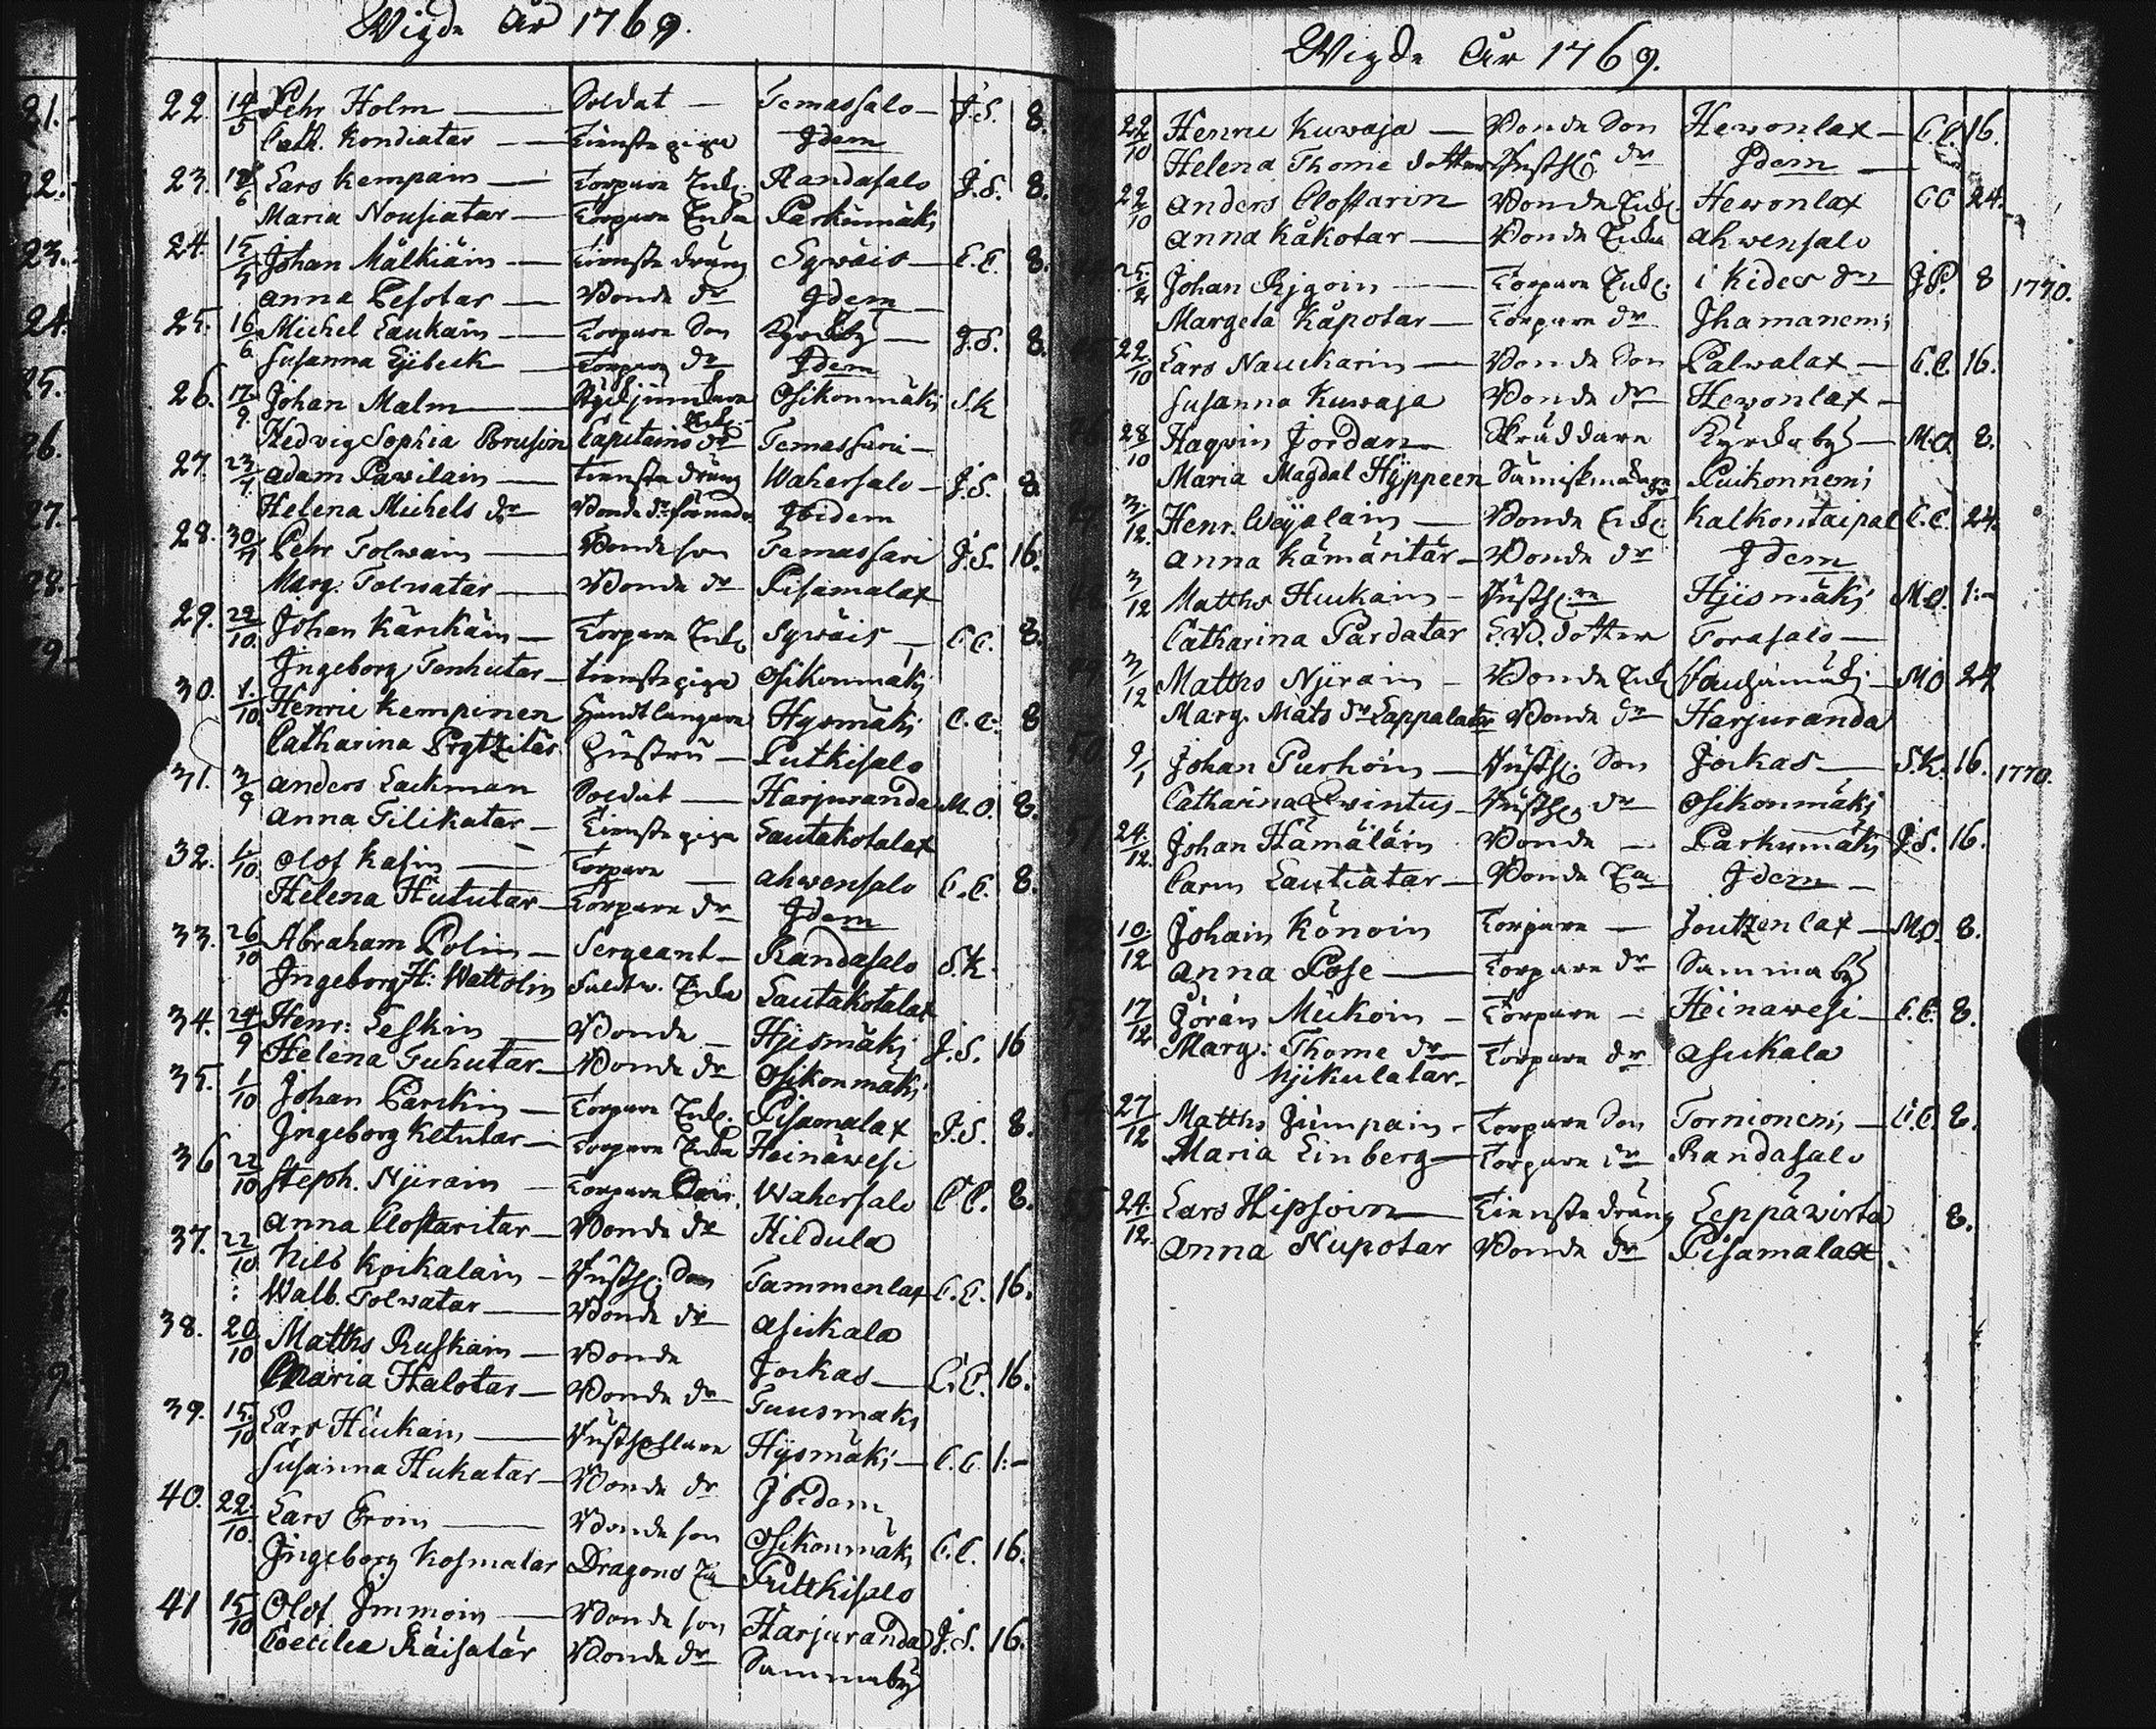 Wigde År 1769.
22. 14/5 Pehr Holm — Soldat — Temassalo — J.S. 8.
Cath. Kondiatar — Tienste piga Idem
23. Lars Kempain — Torpare Enkl. Randasalo J.S. 8.
Maria Nousiatar — Torpare Enka Parkumäki
24. 15/5 Johan Mälkiäin — Tienste dräng Sywäis — C.C. 8.
Anna Pesotar — Bonde dr Idem
25. 16/6 Michel Laukain — Torpare Son — J.S. 8.
Susanna Eÿbeck — Torpare dr Idem
26. 17/9 Johan Malm — Osikonmäki S.K
Hedvig Sophia Brusin Capitains dr Temassari —
27. 23/4 Adam Pawilain — tienste dräng Wahersalo — J.S. 8.
Helena Michels dr Bonde dr Ibidem
28. 30/4 Pehr Tolwain — Bonde son Temassari J.S. 16.
Marg. Tolwatar — Bonde dr Pisamalax
29. 22/10 Johan Kärckäin — Torpare Enkl. Sywäis — C.C. 8.
Ingeborg Tenhutar — tienste piga Osikonmäki
30. 1/10 Henric Kempinen Handtlangare Hysmäki C.C. 8
Catharina Hustru — Putkisalo
31. 3/9 Anders Lackman Soldat — Harjuranda M.O. 8.
Anna Tilikatar — Tienste piga Lautakotalax
32. 1/10 Olof Kasin — Torpare — Ahwensalo C.C. 8.
Helena Hututar — Torpare dr Idem
33. 26/10 Abraham Polin — Sergeant — Randasalo S.K.
Ingeborg H: Wattolin Enka Lautakotalax
34. 24/9 Henr: Leskin — Bonde — Hjismäki J.S. 16
Helena Tuhutar — Bonde dr Osikonmäki
35. 1/10 Johan Parckin — Torpare Enkl. Pisamalax J.S. 8.
Ingeborg Ketutar — Torpare Enka Heinäwesi
36 22/10 Steph. Njirain — Torpare Wahersalo C.C. 8.
Anna Clostaritar — Bonde dr Hildula
37. 22/10 Nils Koikalain — Rusth. Son Tammenlax C.C. 16.
Walb. Tolwatar — Bonde dr Asickala
38. 20/10 Matths Ruskain — Bonde Jockas — C.C. 16.
Maria Halotar — Bonde dr Tuusmäki
39. 15/10 Lars Huckain — Rusthollare Hÿsmäki — C.C. 1:—
Susanna Hukatar — Bonde dr Ibidem
40. 22/10 Lars Eroin — Bonde son Osikonmäki C.C. 16.
Ingeborg Kosmatar Dragons Putkisalo
41 15/10 Olof Immoin — Bonde son Harjuranda J.S. 16.
Coecilia Räisatär Bonde dr Sammaby
Wigde År 1769.
22/10 Henric Kuwaja — Bonde Son Hewonlax — C.C. 16.
Helena Thome dotter Rusth. dr Idem —
22/10 Anders Clostarin Bonde Enkl. Hewonlax CC 24.
Anna Käkotar — Bonde Enka Ahwensalo
Johan — Torpare Enkl. i Kides J.P. 8 1770.
Margeta Käpotar — Torpare dr Ihamaniemi
22/10 Lars Nauckarin — Bonde Son Palwalax — C.C. 16.
Susanna Kuwaja Bonde dr Hewonlax —
28/10 Haqvin Jordan Skräddare Kÿrckobÿ — M.O 8.
Maria Magdal Hÿppeen Puikonnemi
3/12 Henr. Weÿalain — Bonde Enkl. Kalkontaipal C.C. 24.
Anna Kämäritär — Bonde dr Idem
3/12 Matths Huckain — Hjismäki M.O. 1:—
Catharina Pardatar dotter Torasalo —
3/12 Matths Njirain — Bonde Enkl. MO 24
Marg. Mats dr Lappalatar Bonde dr Harjuranda
50. 9/1 Johan Purhoin — Rusth. Son Jockas — S.K. 16. 1770.
Catharina Qwintus — Rusth. dr Osikonmäki
51 24/12 Johan Hämäläin Bonde — Parkumäki J.S. 16.
Carin Lautiatar — Bonde Idem —
10/12 Johain Könoin Torpare — Joutzenlax — M.O. 8.
Anna Pose — Torpare dr Samma bÿ
53 17/12 Jöran Mickoin — Torpare — Heinäwesi — C.C. 8.
Marg: Thome dr Torpare dr Asickala
Njikulatar —
54 27/12 Matths Jumpain — Torpare Son Tornionemi — C.C. 8.
Maria Einberg — Torpare dr Randasalo
55 24/12 Lars Hipsoin — Tienste dräng Leppäwirta 8.
Anna Nupotar Bonde dr Pisamalax